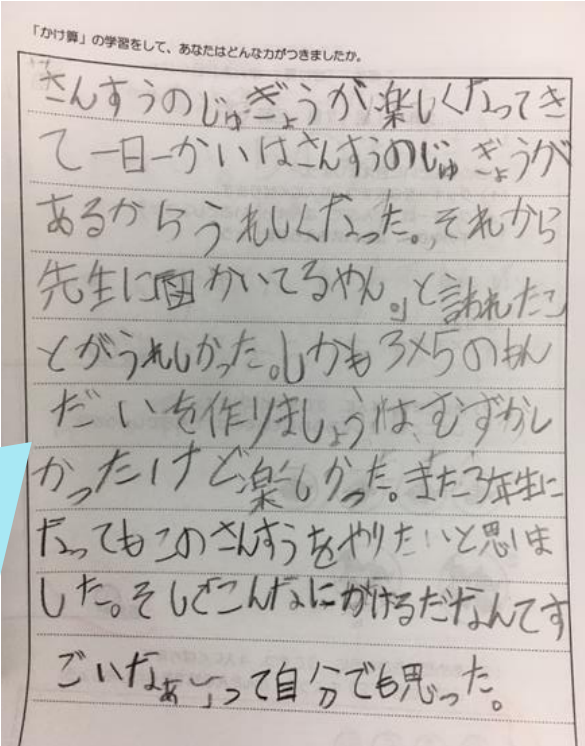 「かけ算」の学習をして、あなたはどんな力がつきましたか。
さんすうのじゅぎょうが楽しくなってき
て一日一かいはさんすうのじゅぎょうが
あるからうれしくなった。それから
先生に「図かいてるやん。」と言われたこ
とがうれしかった。しかも3×5のもん
だいを作りましょうはむずかし
かったけど楽しかった。また3年生に
なってもこのさんすうをやりたいと思いま
した。そしてこんなにかけるだなんてす
ごいなぁ〜って自分でも思った。